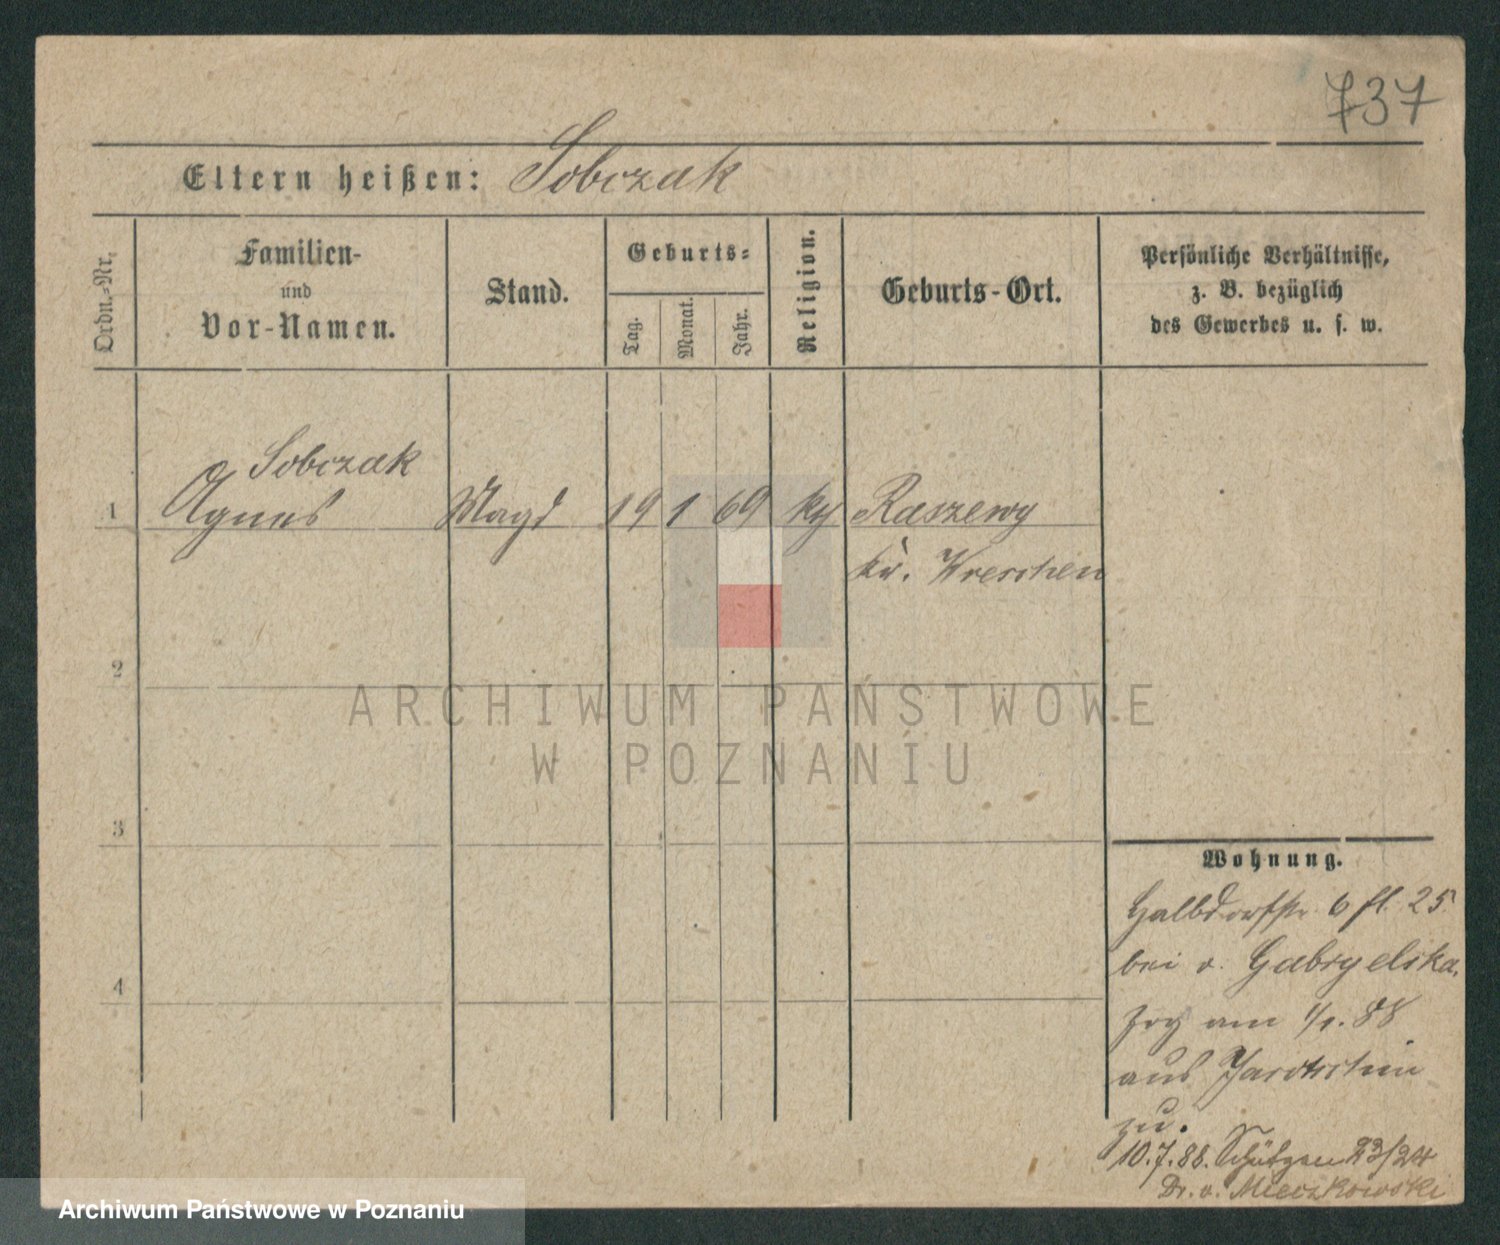 737
Eltern heißen: Sobczak
Ordn.-Nr.
Familien-
und
Vor-Namen.
Stand.
Geburts-
Tag.
Monat.
Jahr.
Religion.
Geburts-Ort.
Persönliche Verhältnisse,
z. B. bezüglich
des Gewerbes u. s. w.
Sobczak
1 Agnes Magd 19 1 69 Raszewy
Kr. Wreschen
2
3
4
Wohnung.
Halbdorfstr 6 25
bei v. Gabryelska,
zog am 1/1. 88
aus Jarotschin
zu.
10.7.88. Schützen 23/24
Dr. v. Mieczkowski
ARCHIWUM PAŃSTWOWE
W POZNANIU
Archiwum Państwowe w Poznaniu